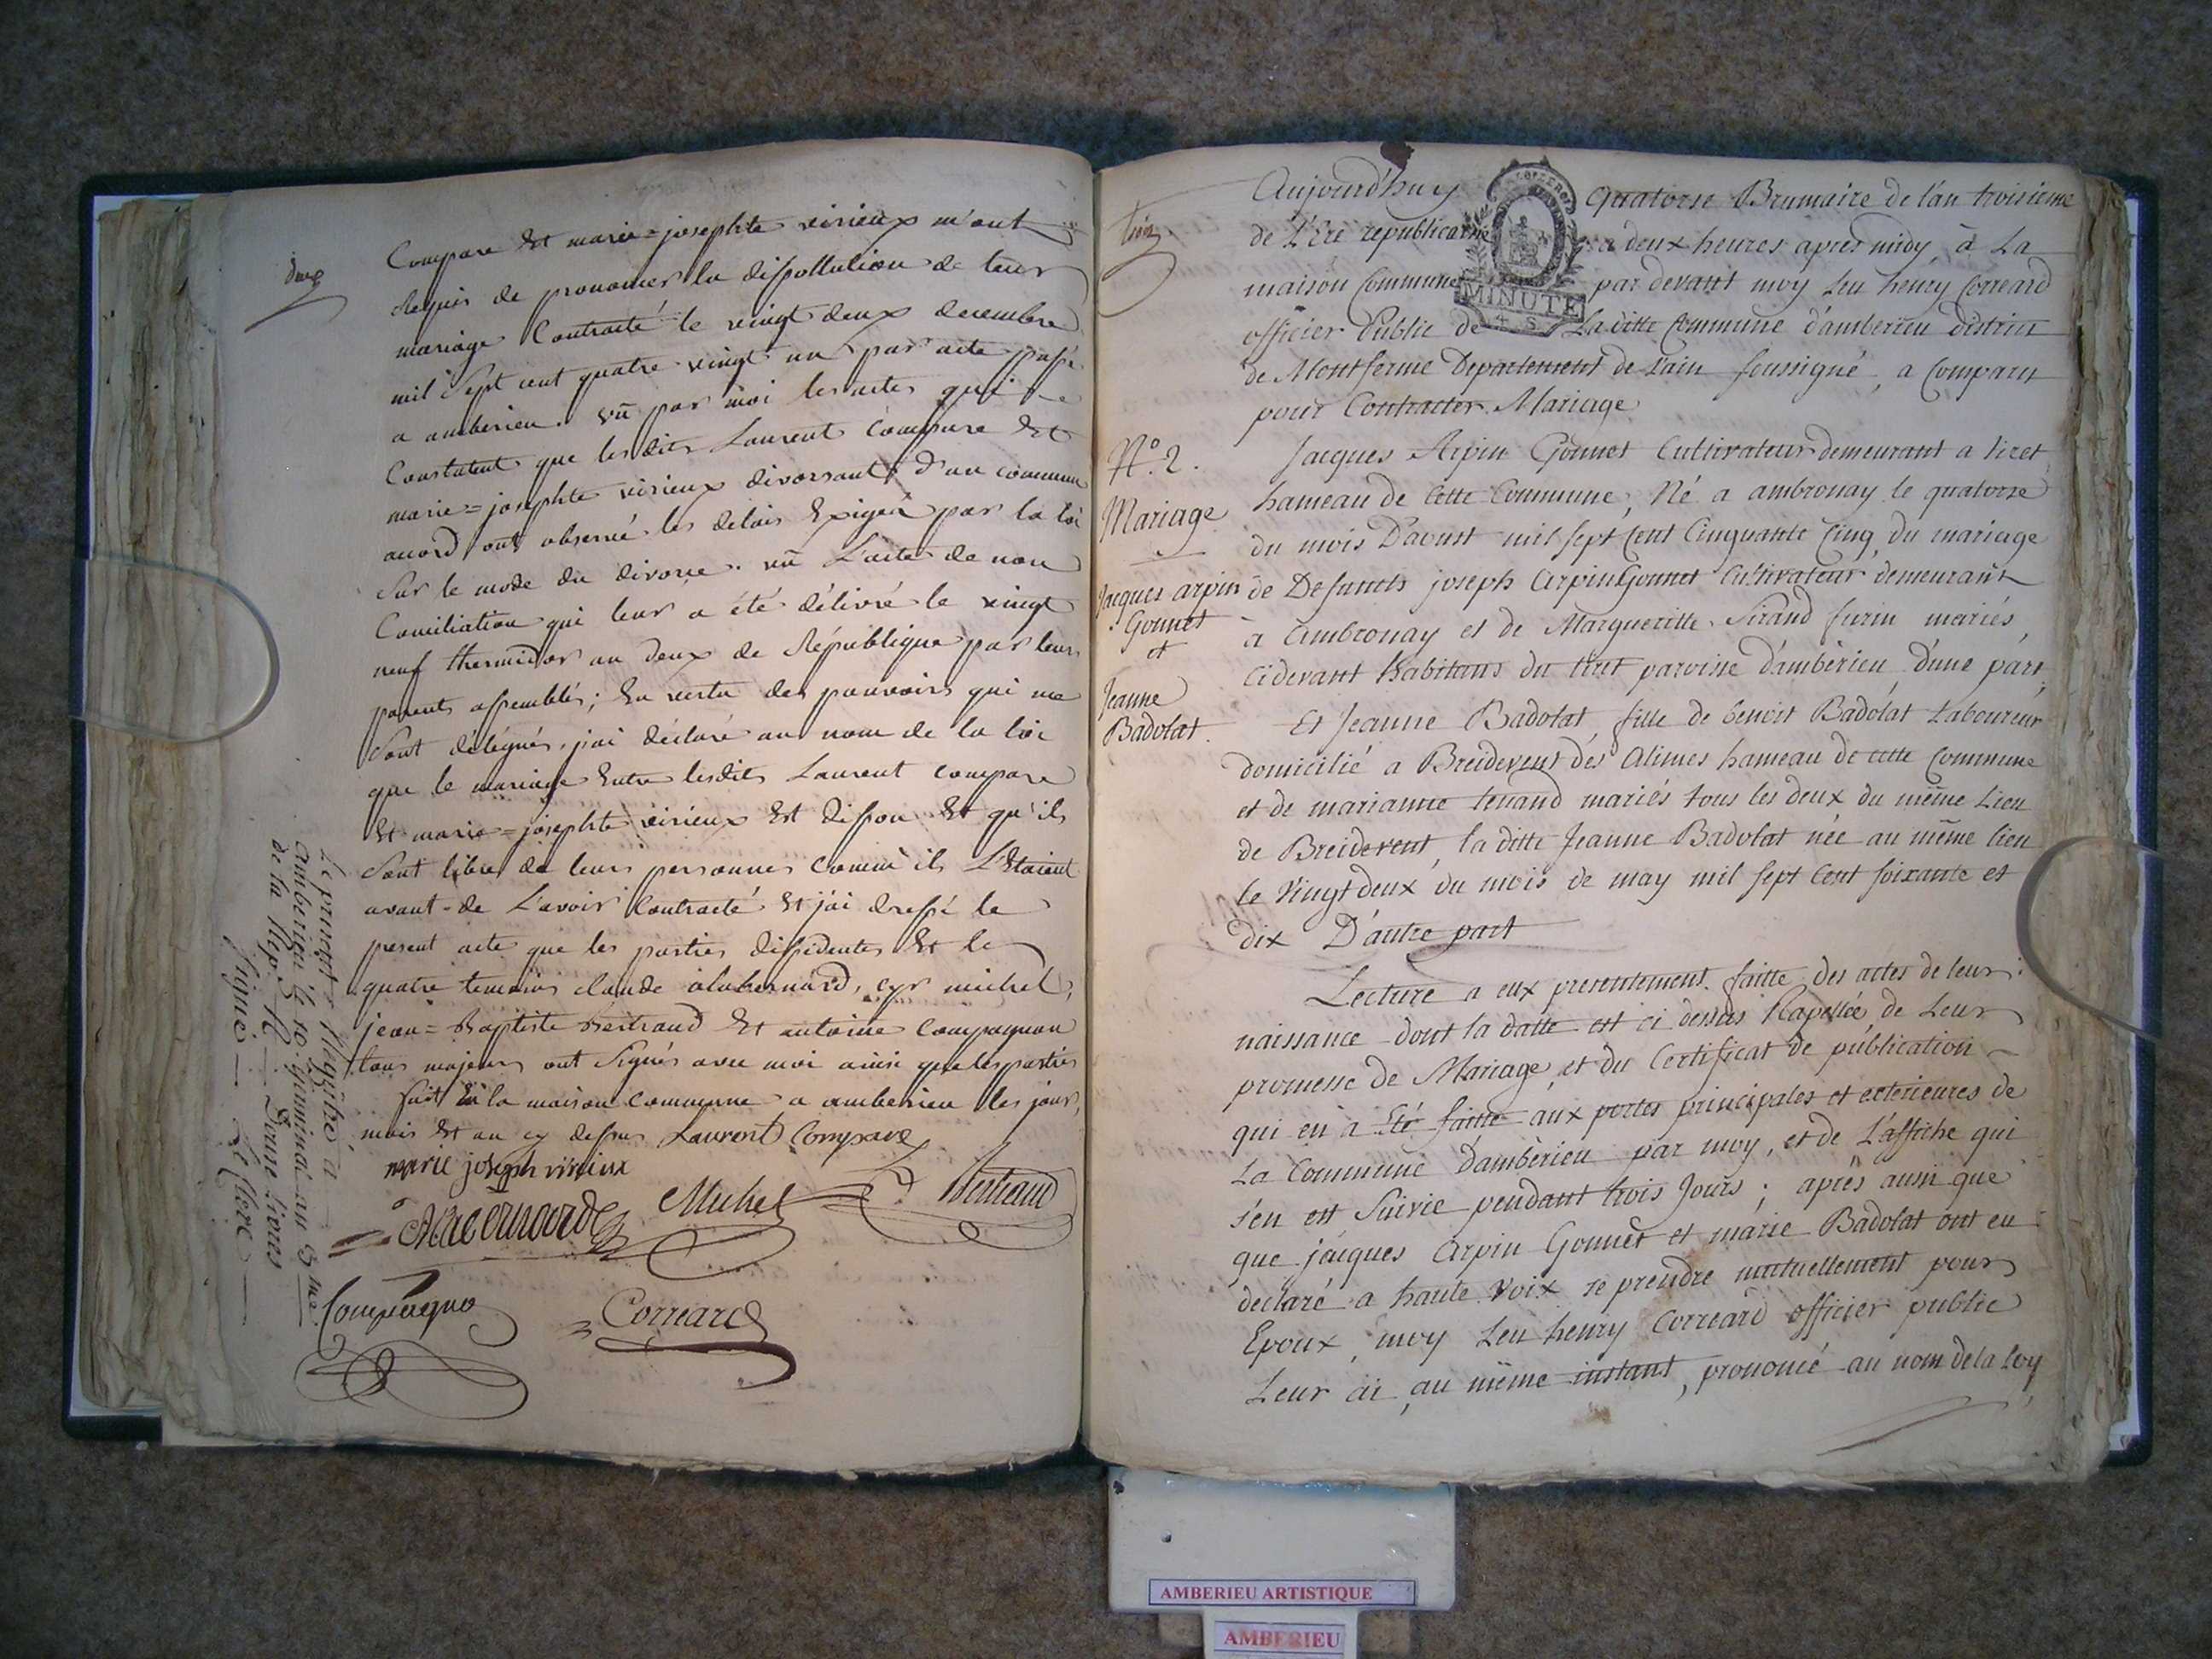 deux
Compare Et marie=josephte virieux m'ont
Requis de prononcer la dissollution de leur
mariage Contracté le vingt deux decembre
mil Sept cent quatre vingt un par acte passé
a amberieu. vû par moi les actes qui
Constatent que lesdits Laurent Compare Et
marie=josephte virieux divorsants d'un commun
accord ont observé les delais Exigés par la loi
Sur le mode du divorce. vû L'acte de non
Conciliation qui leur a été délivré le vingt
neuf thermidor an deux de République par leurs
parents assemblés; En vertu des pouvoirs qui me
Sont délégués, jai déclaré au nom de la loi
que le mariage Entre lesdits Laurent Compare
Et marie=josephte virieux Est dissou Et qu'ils
Sont libres de leurs personnes comme ils L'Etaient
avant-de L'avoir Contracté Et j'ai dressé le
present acte que les parties Et le
quatre temoins claude alabernard, cyr michel,
jean=Baptiste Bertrand Et antoine Compagnon
tous majeurs ont Signés avec moi ainsi que les parties
fait En la maison commune a amberieu les jour,
mois Et an cy dessus Laurent Compare
marie joseph virieux
Alabernarde Michel Bertrand
Compagno Correard
Le present Registré a
Amberieu le 10. germinal an 3me.
de la Rep. fr.
Signé Leclerc
trois
Aujourd'huy quatorse Brumaire de l'an troisieme
de L'Ere republicaine a deux heures apres midy, à La
maison Commune par devant moy Leu henry Correard
MINUTE
4 S
officier Public de La ditte Commune d'amberieu district
de Montferme Departement de L'ain soussigné, a Comparu
pour Contracter Mariage
N.o 2.
Mariage
Jacques arpin
Gonnet
et
Jeanne
Badolat.
Jacques Arpin Gonnet Cultivateur demeurant a tiret
hameau de Cette Commune, Né a ambronay le quatorze
du mois D'aoust mil sept Cent Cinquante Cinq, du mariage
de Defuncts joseph Arpin Gonnet Cultivateur demeurant
à ambronay et de Margueritte Sirand furin mariés
cidevant habitans du tiret paroisse d'ambérieu, d'une part,
Et Jeanne Badolat, fille de benoit Badolat Laboureur
domicilié a Breidevent des Alimes hameau de cette Commune
et de marianne tenand mariés tous les deux du même Lieu
de Breidevent, la ditte Jeanne Badolat née au même lieu
le Vingt deux du mois de may mil sept Cent soixante et
dix D'autre part
Lecture a eux presentement faitte des actes de leur
naissance dont la datte est ci dessus Rapellée, de Leur
promesse de Mariage, et du Certificat de publication
qui en a Eté faitte aux portes principales et exterieures de
La Commune d'ambérieu par moy, et de L'affiche qui
s'en est Suivie pendant trois Jours; après aussi que
que jacques Arpin Gonnêt et marie Badolat ont eu
declaré a haute Voix se prendre mutuellement pour
Epoux, moy Leu henry Correard officier public
Leur ai, au même instant, prononcé au nom de la Loy
AMBERIEU ARTISTIQUE
AMBERIEU